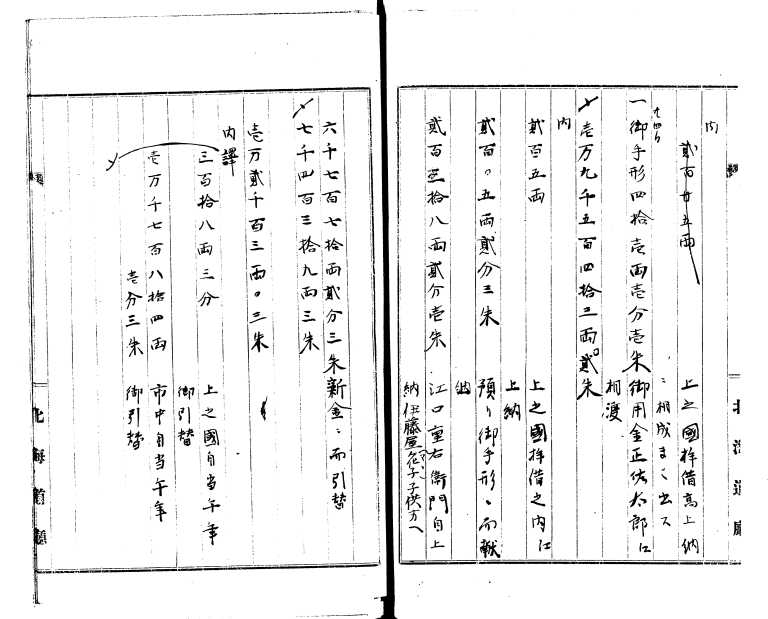 内
貳百廿五両
上之國拝借高上納
ニ相成まく出ス
十四ら
一御手形四拾壱両壱分壱朱御用金正佐太郎江
相渡
壱万九千五百四拾三両貳朱
内
貳百五両
上之國拝借之内江
上納
貳百〇五両貳分三朱
預り御手形ニ而献
納
貳百三拾八両貳分壱朱
江口重右衛門自上
納伊藤屋子供方へ
北海道廳
六千七百七拾両貳分三朱新金ニ而引替
七千四百三拾九両三朱
壱万貳千百三両〇三朱
内譯
三百拾八両三分
上之國自当午年
御引替
壱万千七百八拾四両
壱分三朱
市中自当午年
御引替
北海道廳